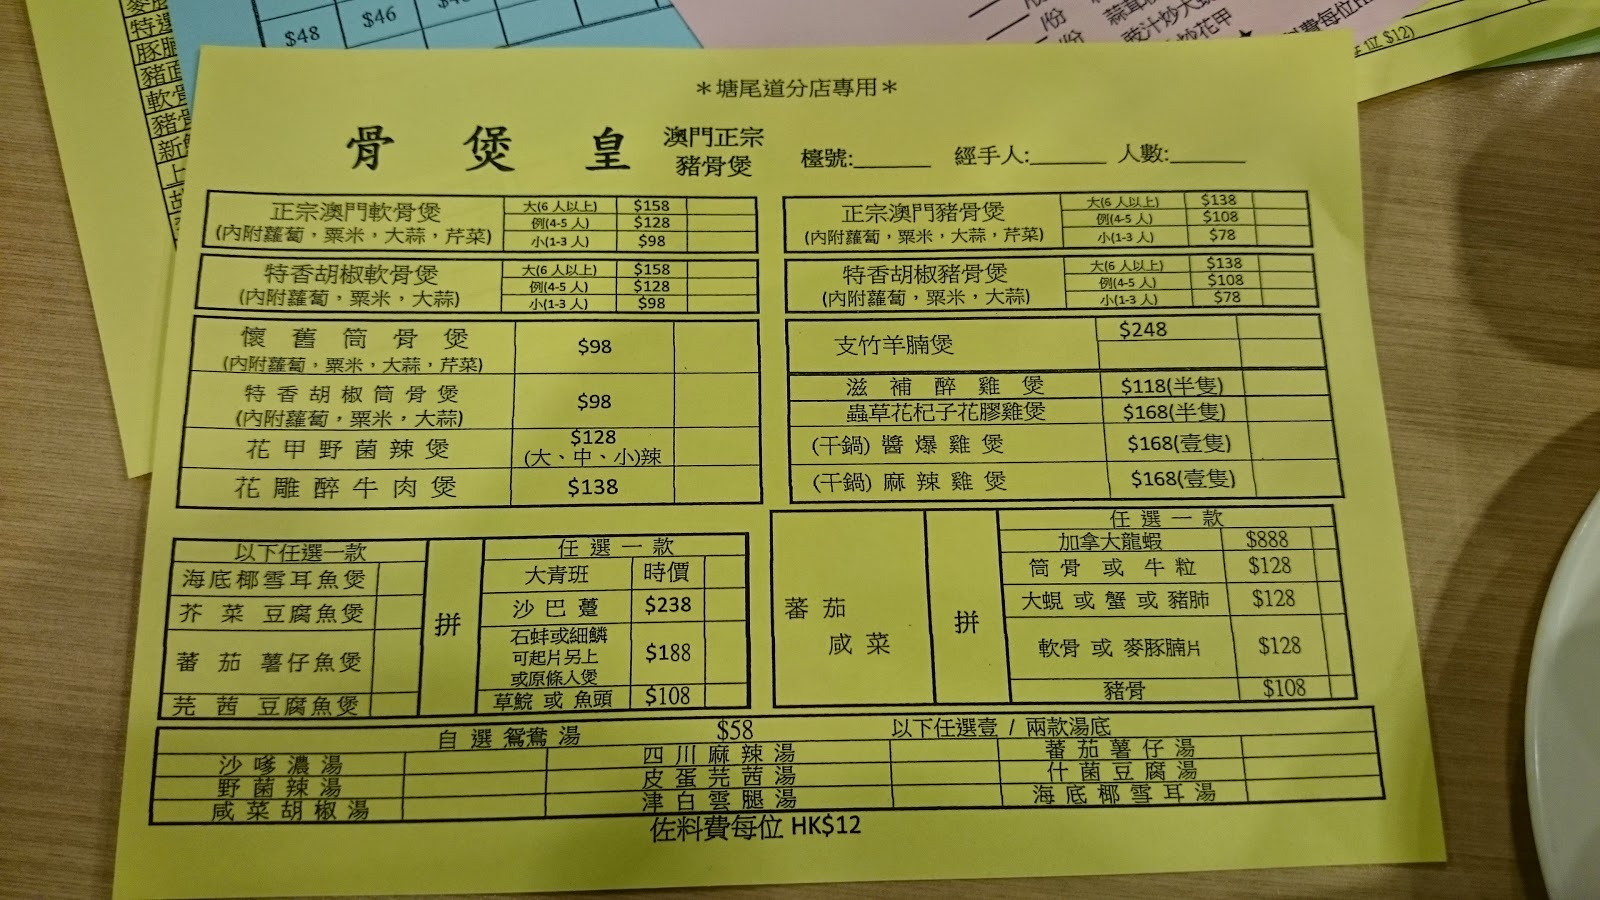 $48 $46
特選
豚腩
軟骨
/份
/份
＊塘尾道分店專用＊
骨 煲 皇 澳門正宗
豬骨煲
檯號:______ 經手人:______ 人數:______
正宗澳門軟骨煲
(內附蘿蔔，粟米，大蒜，芹菜)
大(6 人以上) $158
例(4-5 人) $128
小(1-3 人) $98
特香胡椒軟骨煲
(內附蘿蔔，粟米，大蒜)
大(6 人以上) $158
例(4-5 人) $128
小(1-3 人) $98
懷 舊 筒 骨 煲
(內附蘿蔔，粟米，大蒜，芹菜)
$98
特 香 胡 椒 筒 骨 煲
(內附蘿蔔，粟米，大蒜)
$98
花 甲 野 菌 辣 煲
$128
(大、中、小)辣
花 雕 醉 牛 肉 煲 $138
正宗澳門豬骨煲
(內附蘿蔔，粟米，大蒜，芹菜)
大(6 人以上) $138
例(4-5 人) $108
小(1-3 人) $78
特香胡椒豬骨煲
(內附蘿蔔，粟米，大蒜)
大(6 人以上) $138
例(4-5 人) $108
小(1-3 人) $78
支竹羊腩煲 $248
滋 補 醉 雞 煲 $118(半隻)
蟲草花杞子花膠雞煲 $168(半隻)
(干鍋) 醬 爆 雞 煲 $168(壹隻)
(干鍋) 麻 辣 雞 煲 $168(壹隻)
以下任選一款
海底椰雪耳魚煲
芥 菜 豆腐魚煲
蕃 茄 薯仔魚煲
芫 茜 豆腐魚煲
拼
任 選 一 款
大青班 時價
沙 巴 躉 $238
石蚌或細鱗
可起片另上
或原條入煲
$188
草鯇 或 魚頭 $108
蕃 茄
咸 菜
拼
任 選 一 款
加拿大龍蝦 $888
筒 骨 或 牛 粒 $128
大蜆 或 蟹 或 豬肺 $128
軟骨 或 麥豚腩片 $128
豬骨 $108
自 選 鴛鴦 湯 $58 以下任選壹 / 兩款湯底
沙 嗲 濃 湯 四 川 麻 辣 湯 蕃 茄 薯 仔 湯
野 菌 辣 湯 皮 蛋 芫 茜 湯 什 菌 豆 腐 湯
咸 菜 胡 椒 湯 津 白 雲 腿 湯 海 底 椰 雪 耳 湯
佐料費每位 HK$12